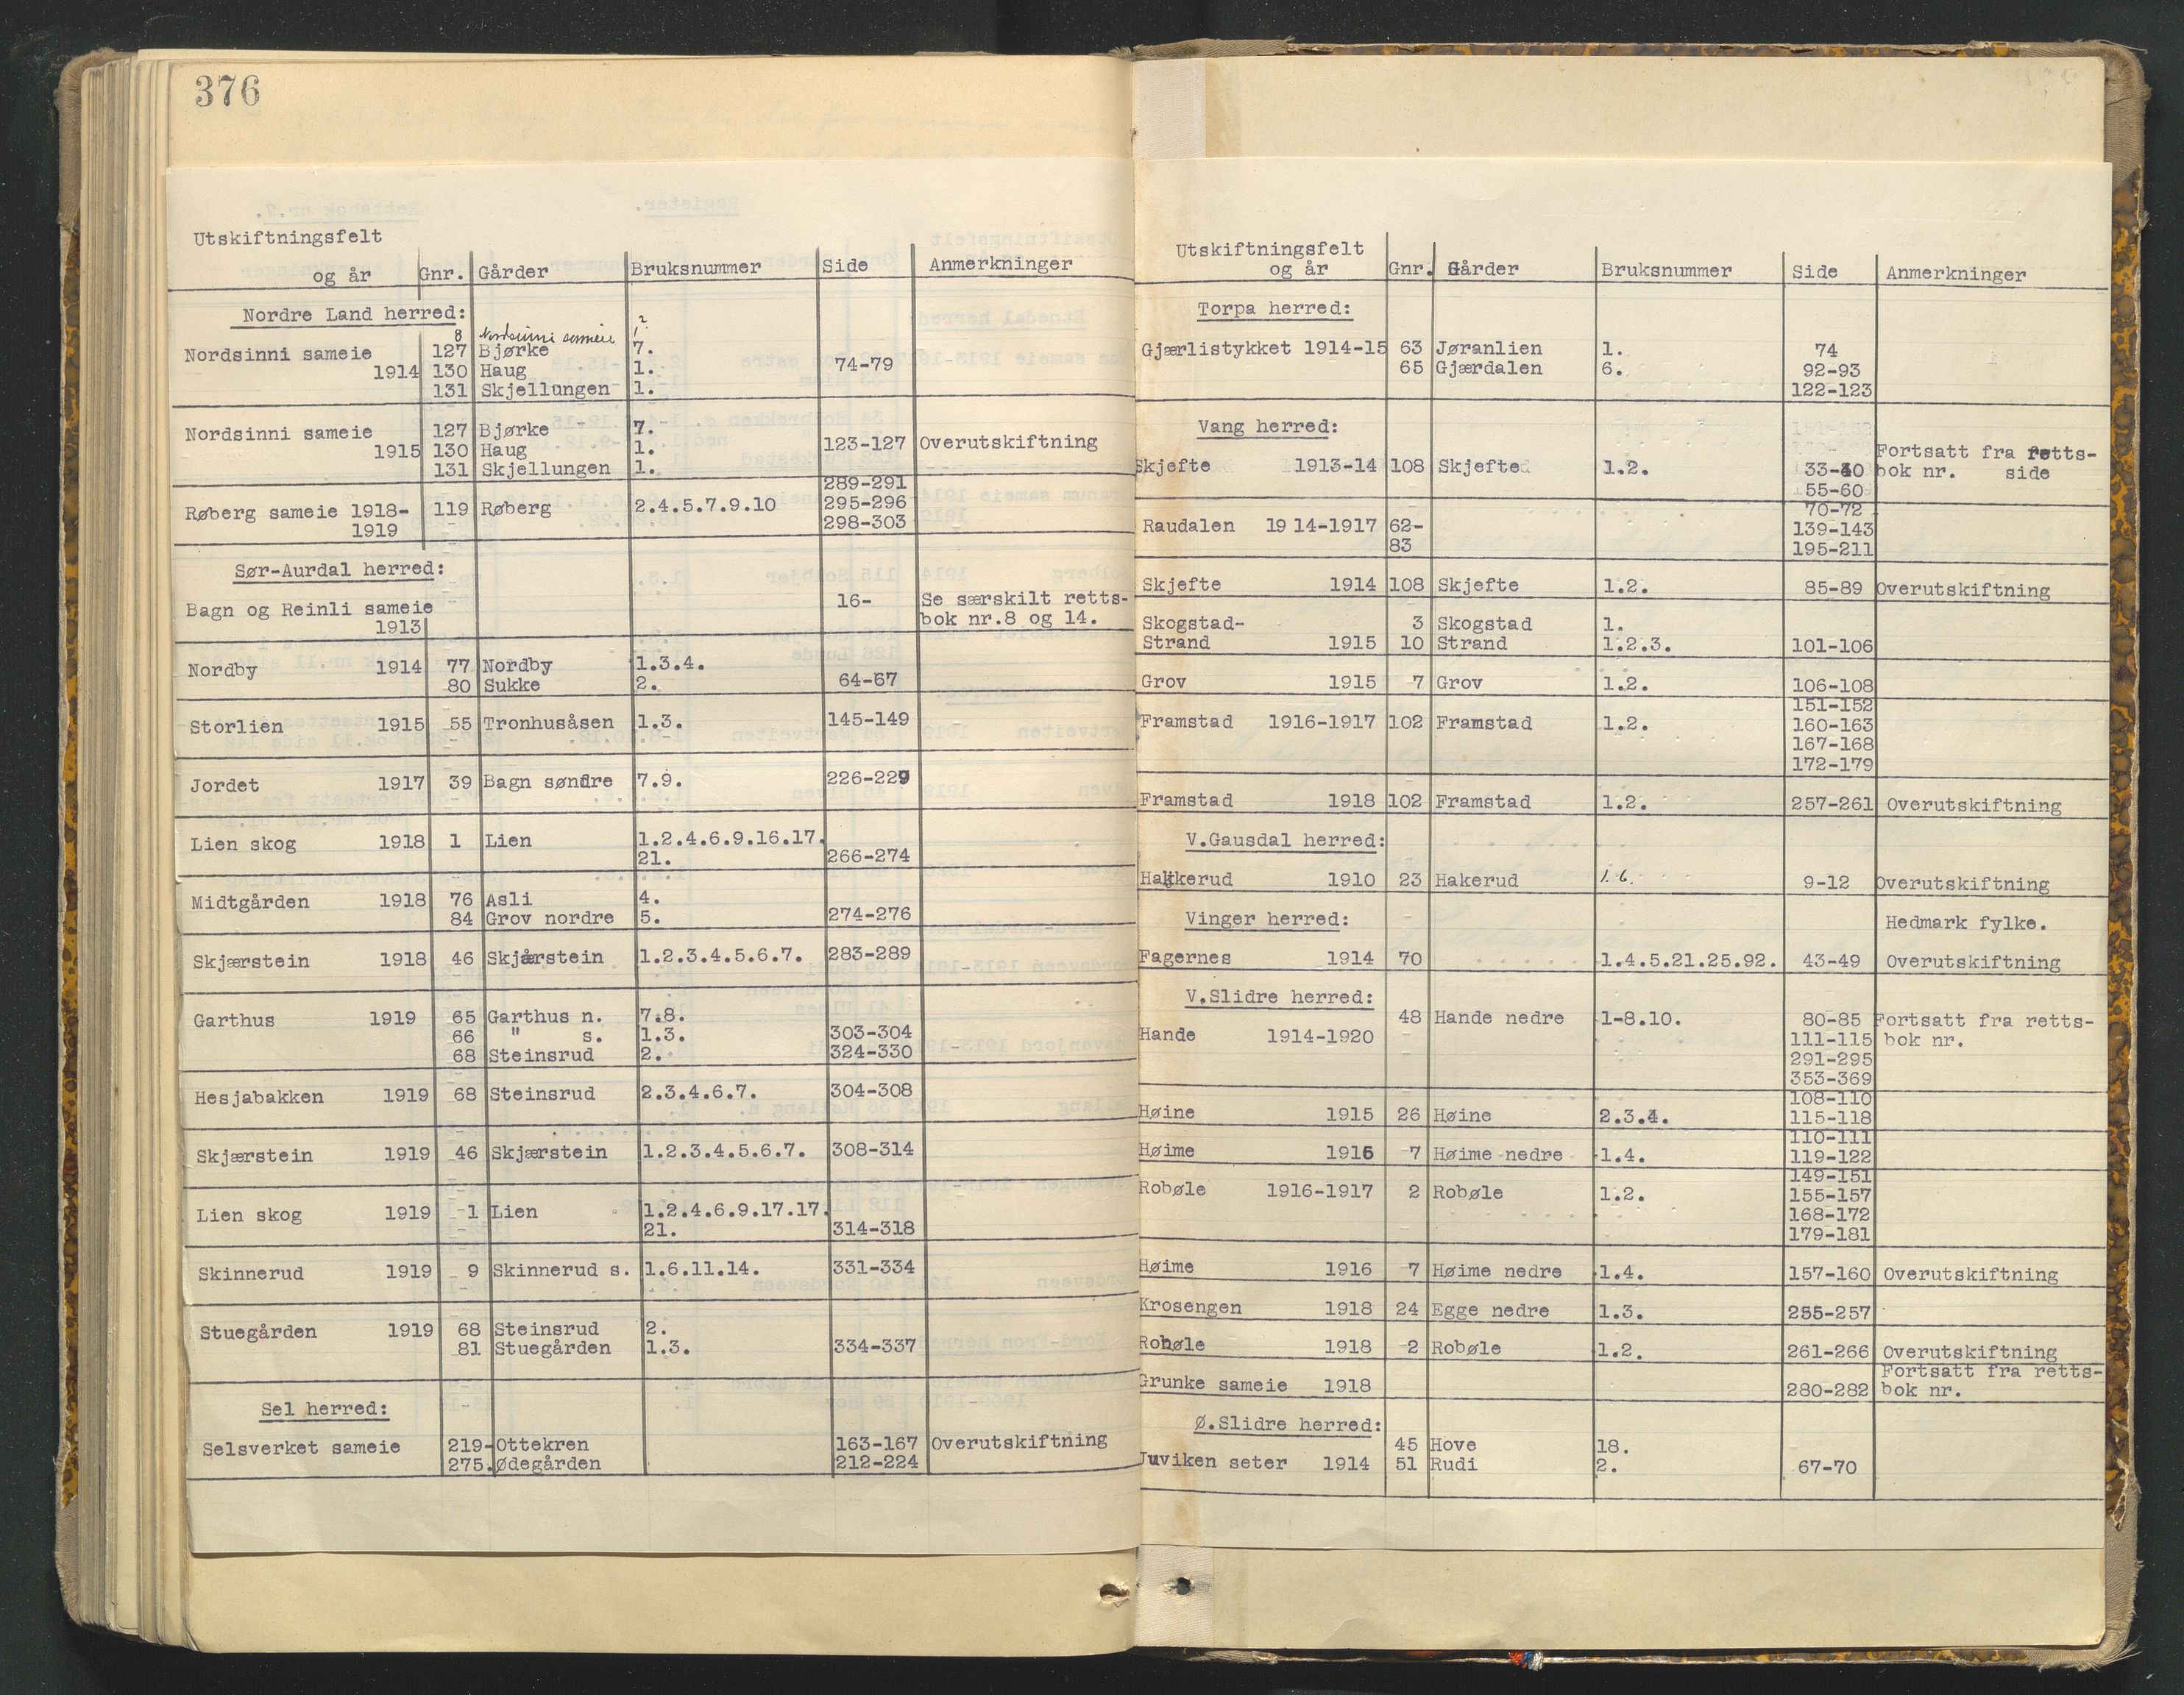 376
Utskiftningsfelt
og år Gnr. Gårder Bruksnummer Side Anmerkninger
Nordre Land herred:
8 Nordsinni sameie 1?
Nordsinni sameie 127 Bjørke 7.
1914 130 Haug 1. 74-79
131 Skjellungen 1.
Nordsinni sameie 127 Bjørke 7.
1915 130 Haug 1. 123-127 Overutskiftning
131 Skjellungen 1.
289-291
Røberg sameie 1918- 119 Røberg 2.4.5.7.9.10 295-296
1919 298-303
Sør-Aurdal herred:
Bagn og Reinli sameie 16- Se særskilt retts-
1913 bok nr.8 og 14.
Nordby 1914 77 Nordby 1.3.4.
80 Sukke 2. 64-67
Storlien 1915 55 Tronhusåsen 1.3. 145-149
Jordet 1917 39 Bagn søndre 7.9. 226-229
Lien skog 1918 1 Lien 1.2.4.6.9.16.17.
21. 266-274
Midtgården 1918 76 Asli 4.
84 Grov nordre 5. 274-276
Skjærstein 1918 46 Skjærstein 1.2.3.4.5.6.7. 283-289
Garthus 1919 65 Garthus n. 7.8.
66 " s. 1.3. 303-304
68 Steinsrud 2. 324-330
Hesjabakken 1919 68 Steinsrud 2.3.4.6.7. 304-308
Skjærstein 1919 46 Skjærstein 1.2.3.4.5.6.7. 308-314
Lien skog 1919 1 Lien 1.2.4.6.9.17.17.
21. 314-318
Skinnerud 1919 9 Skinnerud s. 1.6.11.14. 331-334
Stuegården 1919 68 Steinsrud 2.
81 Stuegården 1.3. 334-337
Sel herred:
Selsverket sameie 219- Ottekren 163-167 Overutskiftning
275. Ødegården 212-224
Utskiftningsfelt
og år Gnr. Gårder Bruksnummer Side Anmerkninger
Torpa herred:
Gjærlistykket 1914-15 63 Jøranlien 1. 74
65 Gjærdalen 6. 92-93
122-123
Vang herred:
Fortsatt fra retts-
Skjefte 1913-14 108 Skjefte 1.2. 33-40 bok nr. side
55-60
70-72
Raudalen 1914-1917 62- 139-143
83 195-211
Skjefte 1914 108 Skjefte 1.2. 85-89 Overutskiftning
Skogstad- 3 Skogstad 1.
Strand 1915 10 Strand 1.2.3. 101-106
Grov 1915 7 Grov 1.2. 106-108
151-152
Framstad 1916-1917 102 Framstad 1.2. 160-163
167-168
172-179
Framstad 1918 102 Framstad 1.2. 257-261 Overutskiftning
V.Gausdal herred:
Hakkerud 1910 23 Hakerud 1.6. 9-12 Overutskiftning
Vinger herred: Hedmark fylke.
Fagernes 1914 70 1.4.5.21.25.92. 43-49 Overutskiftning
V.Slidre herred:
48 Hande nedre 1-8.10. 80-85 Fortsatt fra retts-
Hande 1914-1920 111-115 bok nr.
291-295
353-369
108-110
Høine 1915 26 Høine 2.3.4. 115-118
110-111
Høime 1915 7 Høime nedre 1.4. 119-122
149-151
Robøle 1916-1917 2 Robøle 1.2. 155-157
168-172
179-181
Høime 1916 7 Høime nedre 1.4. 157-160 Overutskiftning
Krosengen 1918 24 Egge nedre 1.3. 255-257
Robøle 1918 2 Robøle 1.2. 261-266 Overutskiftning
Fortsatt fra retts-
Grunke sameie 1918 280-282 bok nr.
Ø.Slidre herred:
45 Hove 18.
Juviken seter 1914 51 Rudi 2. 67-70